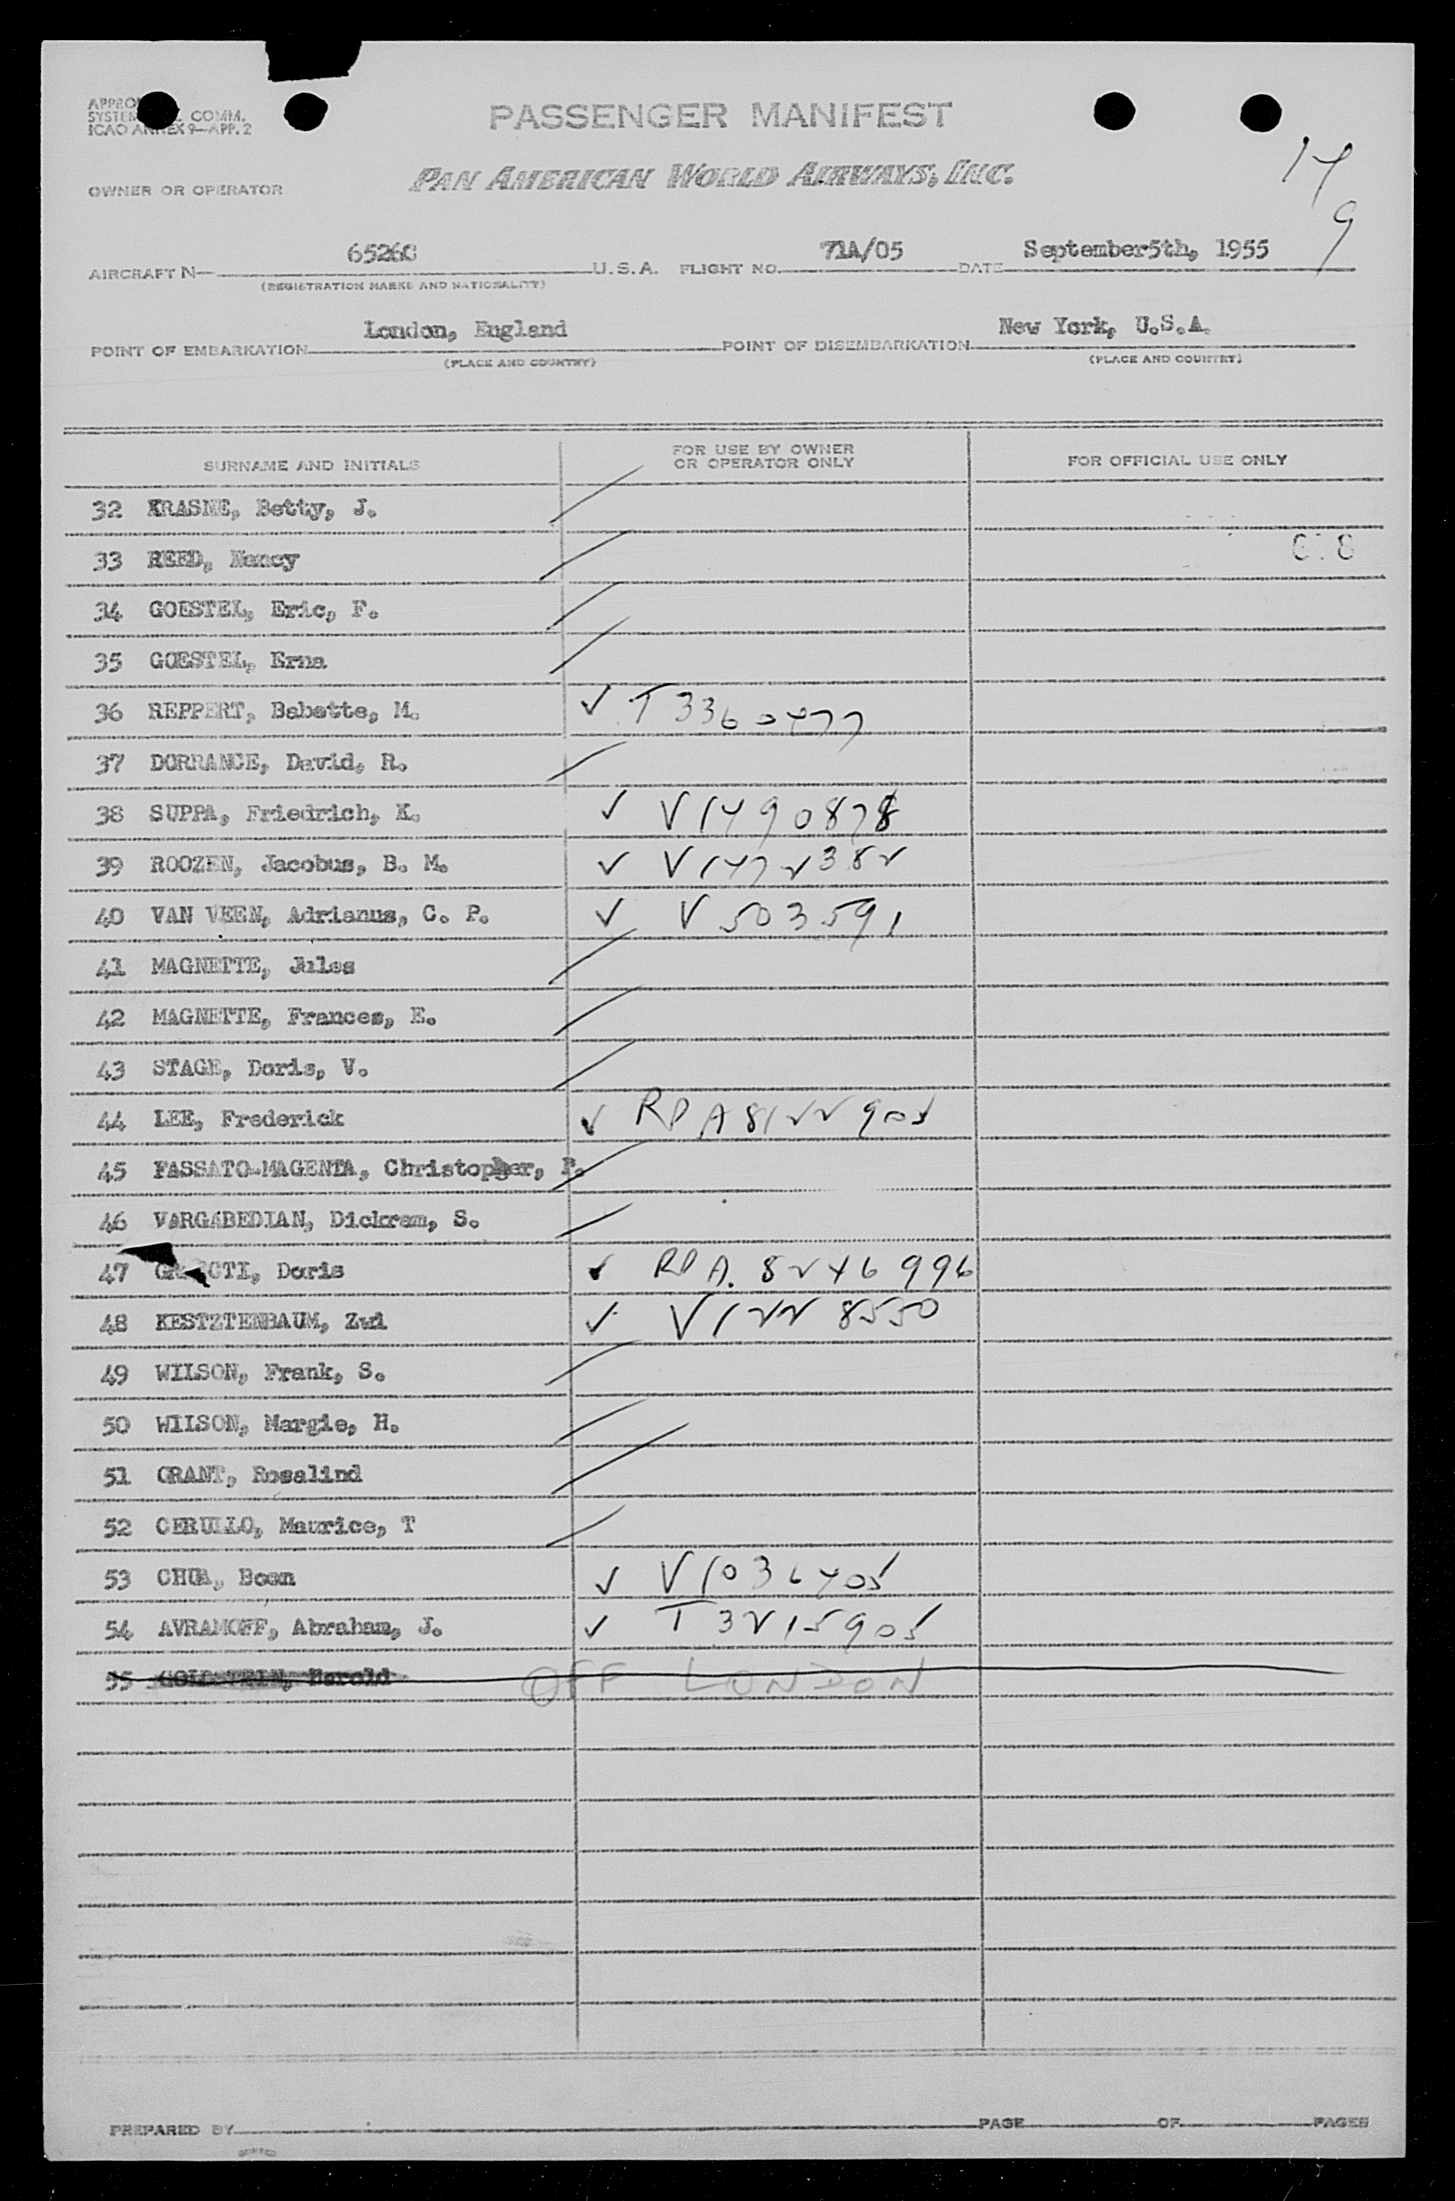 PASSENGER MANIFEST
SYSTEM COMM.
ICAO ANNEX 9—APP. 2
PAN AMERICAN WORLD AIRWAYS, INC.
OWNER OR OPERATOR
14
9
AIRCRAFT N— 6526C U.S.A. FLIGHT NO. 71A/05 DATE September5th, 1955
(REGISTRATION MARKS AND NATIONALITY)
POINT OF EMBARKATION London, England POINT OF DISEMBARKATION New York, U.S.A.
(PLACE AND COUNTRY) (PLACE AND COUNTRY)
SURNAME AND INITIALS FOR USE BY OWNER OR OPERATOR ONLY FOR OFFICIAL USE ONLY
32 KRASNE, Betty, J.
33 REED, Nancy
34 GOESTEL, Eric, F.
35 GOESTEL, Erna
36 REPPERT, Babette, M. ✓ T3360477
37 DORRANCE, David, R.
38 SUPPA, Friedrich, K. ✓ V1490878
39 ROOZEN, Jacobus, B. M. ✓ V1472382
40 VAN VEEN, Adrianus, C. P. ✓ V503591
41 MAGNETTE, Jules
42 MAGNETTE, Frances, E.
43 STAGE, Doris, V.
44 LEE, Frederick ✓ RPA8122905
45 FASSATO-MAGENTA, Christopher, P.
46 VARGABEDIAN, Dickram, S.
47 Doris ✓ RPA. 8246996
48 KESTZTENBAUM, Zwi ✓ V1228550
49 WILSON, Frank, S.
50 WILSON, Margie, H.
51 GRANT, Rosalind
52 CERULLO, Maurice, T
53 CHUA, Boen ✓ V1036405
54 AVRAMOFF, Abraham, J. ✓ T3215905
55 GOLDSTEIN, Harold OFF LONDON
PREPARED BY PAGE OF PAGES